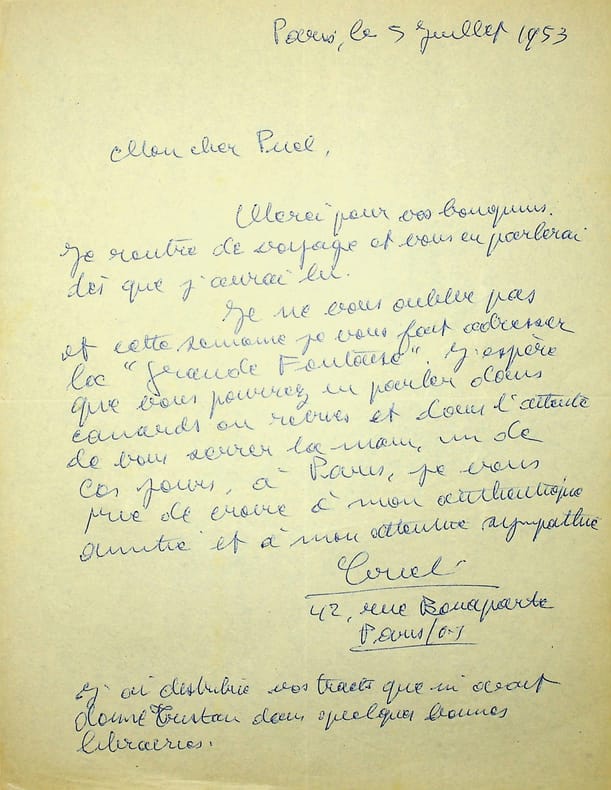 Paris, le 5 Juillet 1953
Mon cher Puel,
Merci pour vos bouquins.
Je rentre de voyage et vous en parlerai
dès que j'aurai lu.
Je ne vous oublie pas
et cette semaine je vous fait adresser
la "Grande Fontaise". J'espère
que vous pourrez en parler dans
canards ou revues et dans l'attente
de vous serrer la main, un de
ces jours, à Paris, je vous
prie de croire à mon authentique
amitié et à mon attentive sympathie
42, rue Bonaparte
Paris
J'ai distribué vos tracts que m'avait
donné Tristan dans quelques bonnes
librairies.